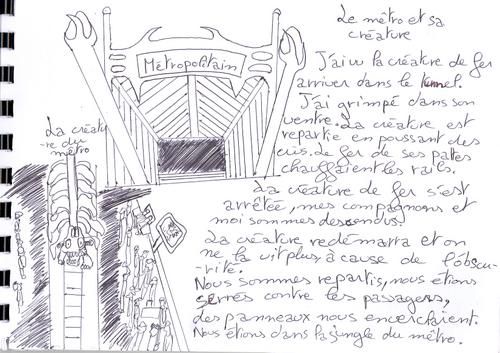 Le métro et sa
créature
Métropolitain
La créatu
-re du
métro
J'ai vu la créature de fer
arriver dans le tunnel.
J'ai grimpé dans son
ventre. La créature est
repartie en poussant des
cris. Le fer de ses pattes
chauffaient les rails.
La créature de fer s'est
arrêtée, mes compagnons et
moi sommes descendus.
La créature redémarra et on
ne la vit plus, à cause de l'obscu-
-rité.
Nous sommes repartis, nous étions
serrés contre les passagers,
des panneaux nous encerclaient.
Nous étions dans la jungle du métro.